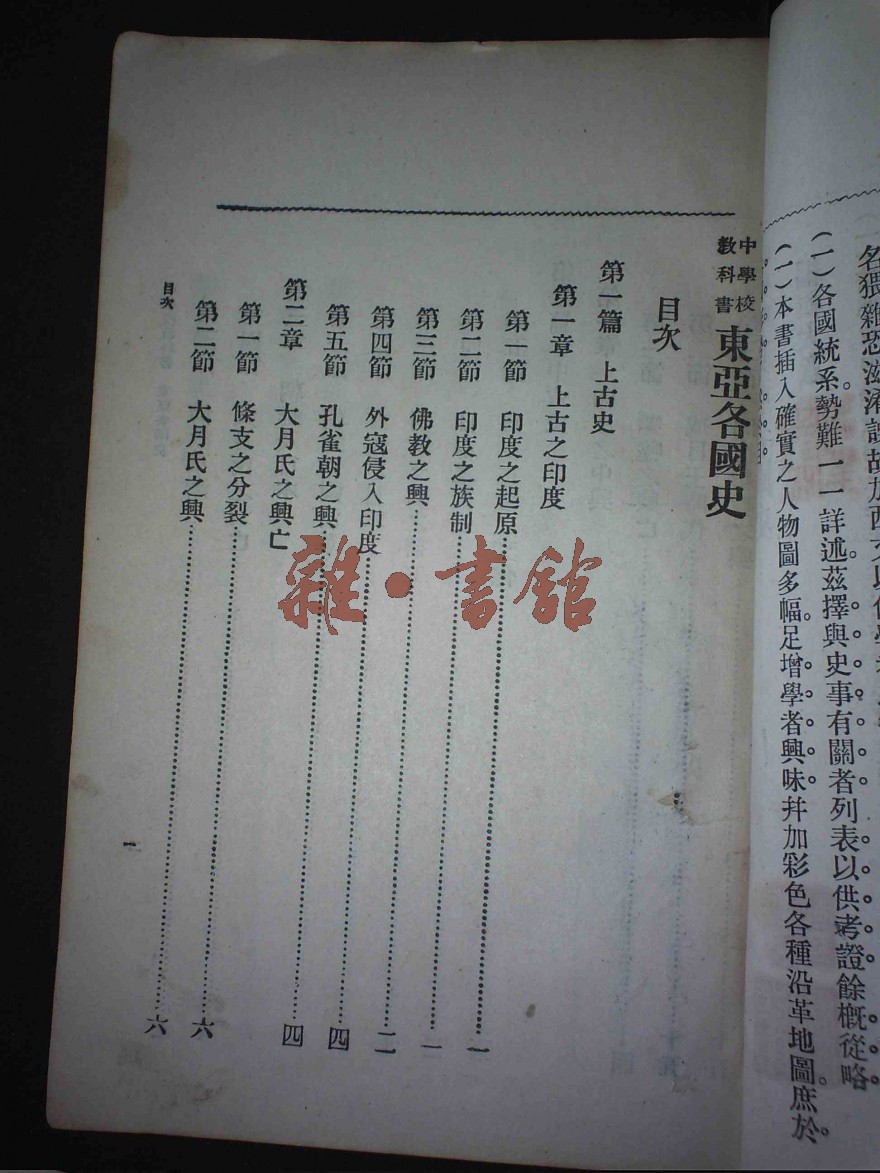 名猥雜恐滋淆誤故加西文以便學
(一)各國統系勢難一一詳述。茲擇與史事有關者列表以供考證。餘概從略。
(一)本書插入確實之人物圖多幅。足增學者興味。幷加彩色各種沿革地圖。庶於
中學校
教科書
東亞各國史
目次
第一篇 上古史
第一章 上古之印度
第一節 印度之起原……一
第二節 印度之族制……一
第三節 佛教之興……二
第四節 外寇侵入印度……四
第五節 孔雀朝之興……四
第二章 大月氏之興亡
第一節 條支之分裂……六
第二節 大月氏之興……六
目次
一
雜·書館